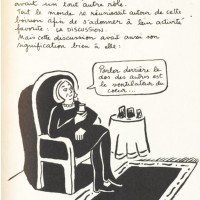 avait un tout autre rôle.
Tout le monde se réunissait autour de cette
boisson afin de s'adonner à leur activité
favorite : LA DISCUSSION.
Mais cette discussion avait aussi son
signification bien à elle :
Parler derrière le
dos des autres est
le ventilateur du
coeur...